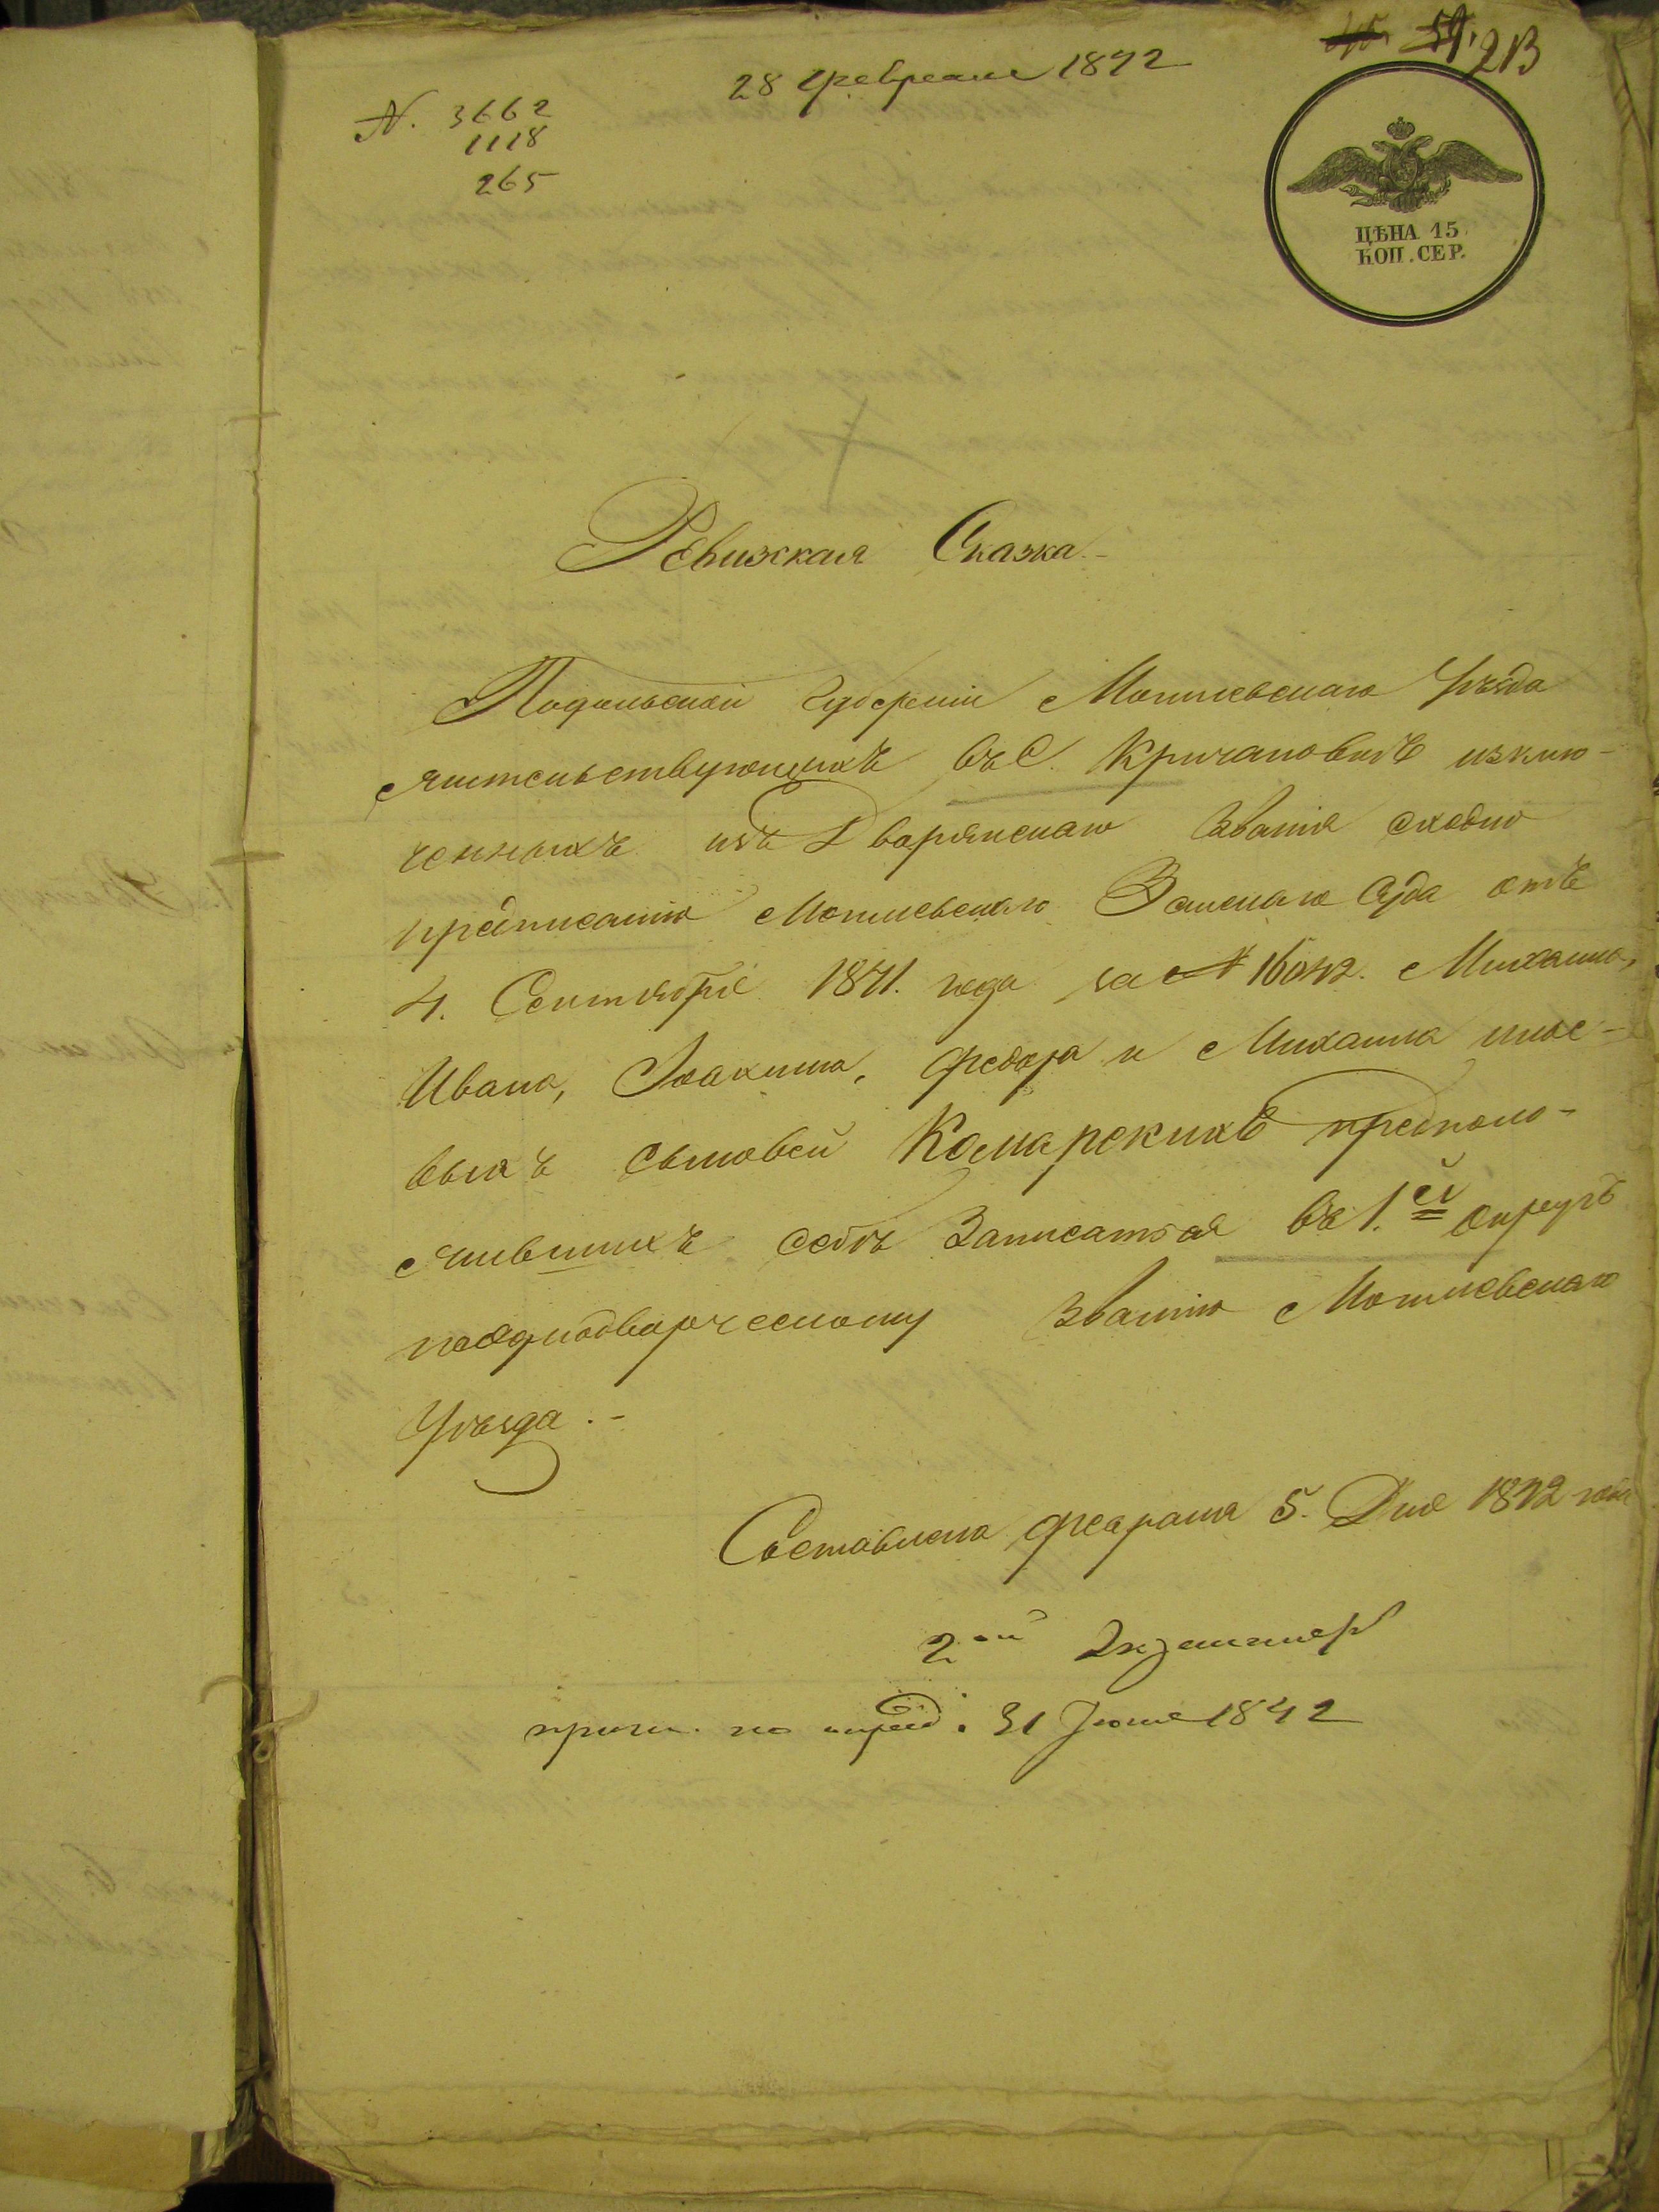 213
28 февраля 1842
N. 3662
1118
265
ЦѢНА 15
КОП. СЕР.
Ревизская Сказка.
Подольской Губерніи Могилевскаго Уѣзда
жительствующихъ въ С. Кричановкѣ изклю-
ченныхъ изъ Дворянскаго Званія сходно
предписанію Могилевскаго Земскаго Суда отъ
4. Сентября 1841. года за № 16042. Михаила,
Ивана, Іоакима, Федора и Михаила
выхъ сыновей Комарскихъ предполо-
жившихъ себѣ Записаться въ 1.й округъ
по однодворческому Званію Могилевскаго
Уѣзда.-
Составлена февраля 5. Дня 1842 года
2ой Экземпляр
31 Іюля 1842